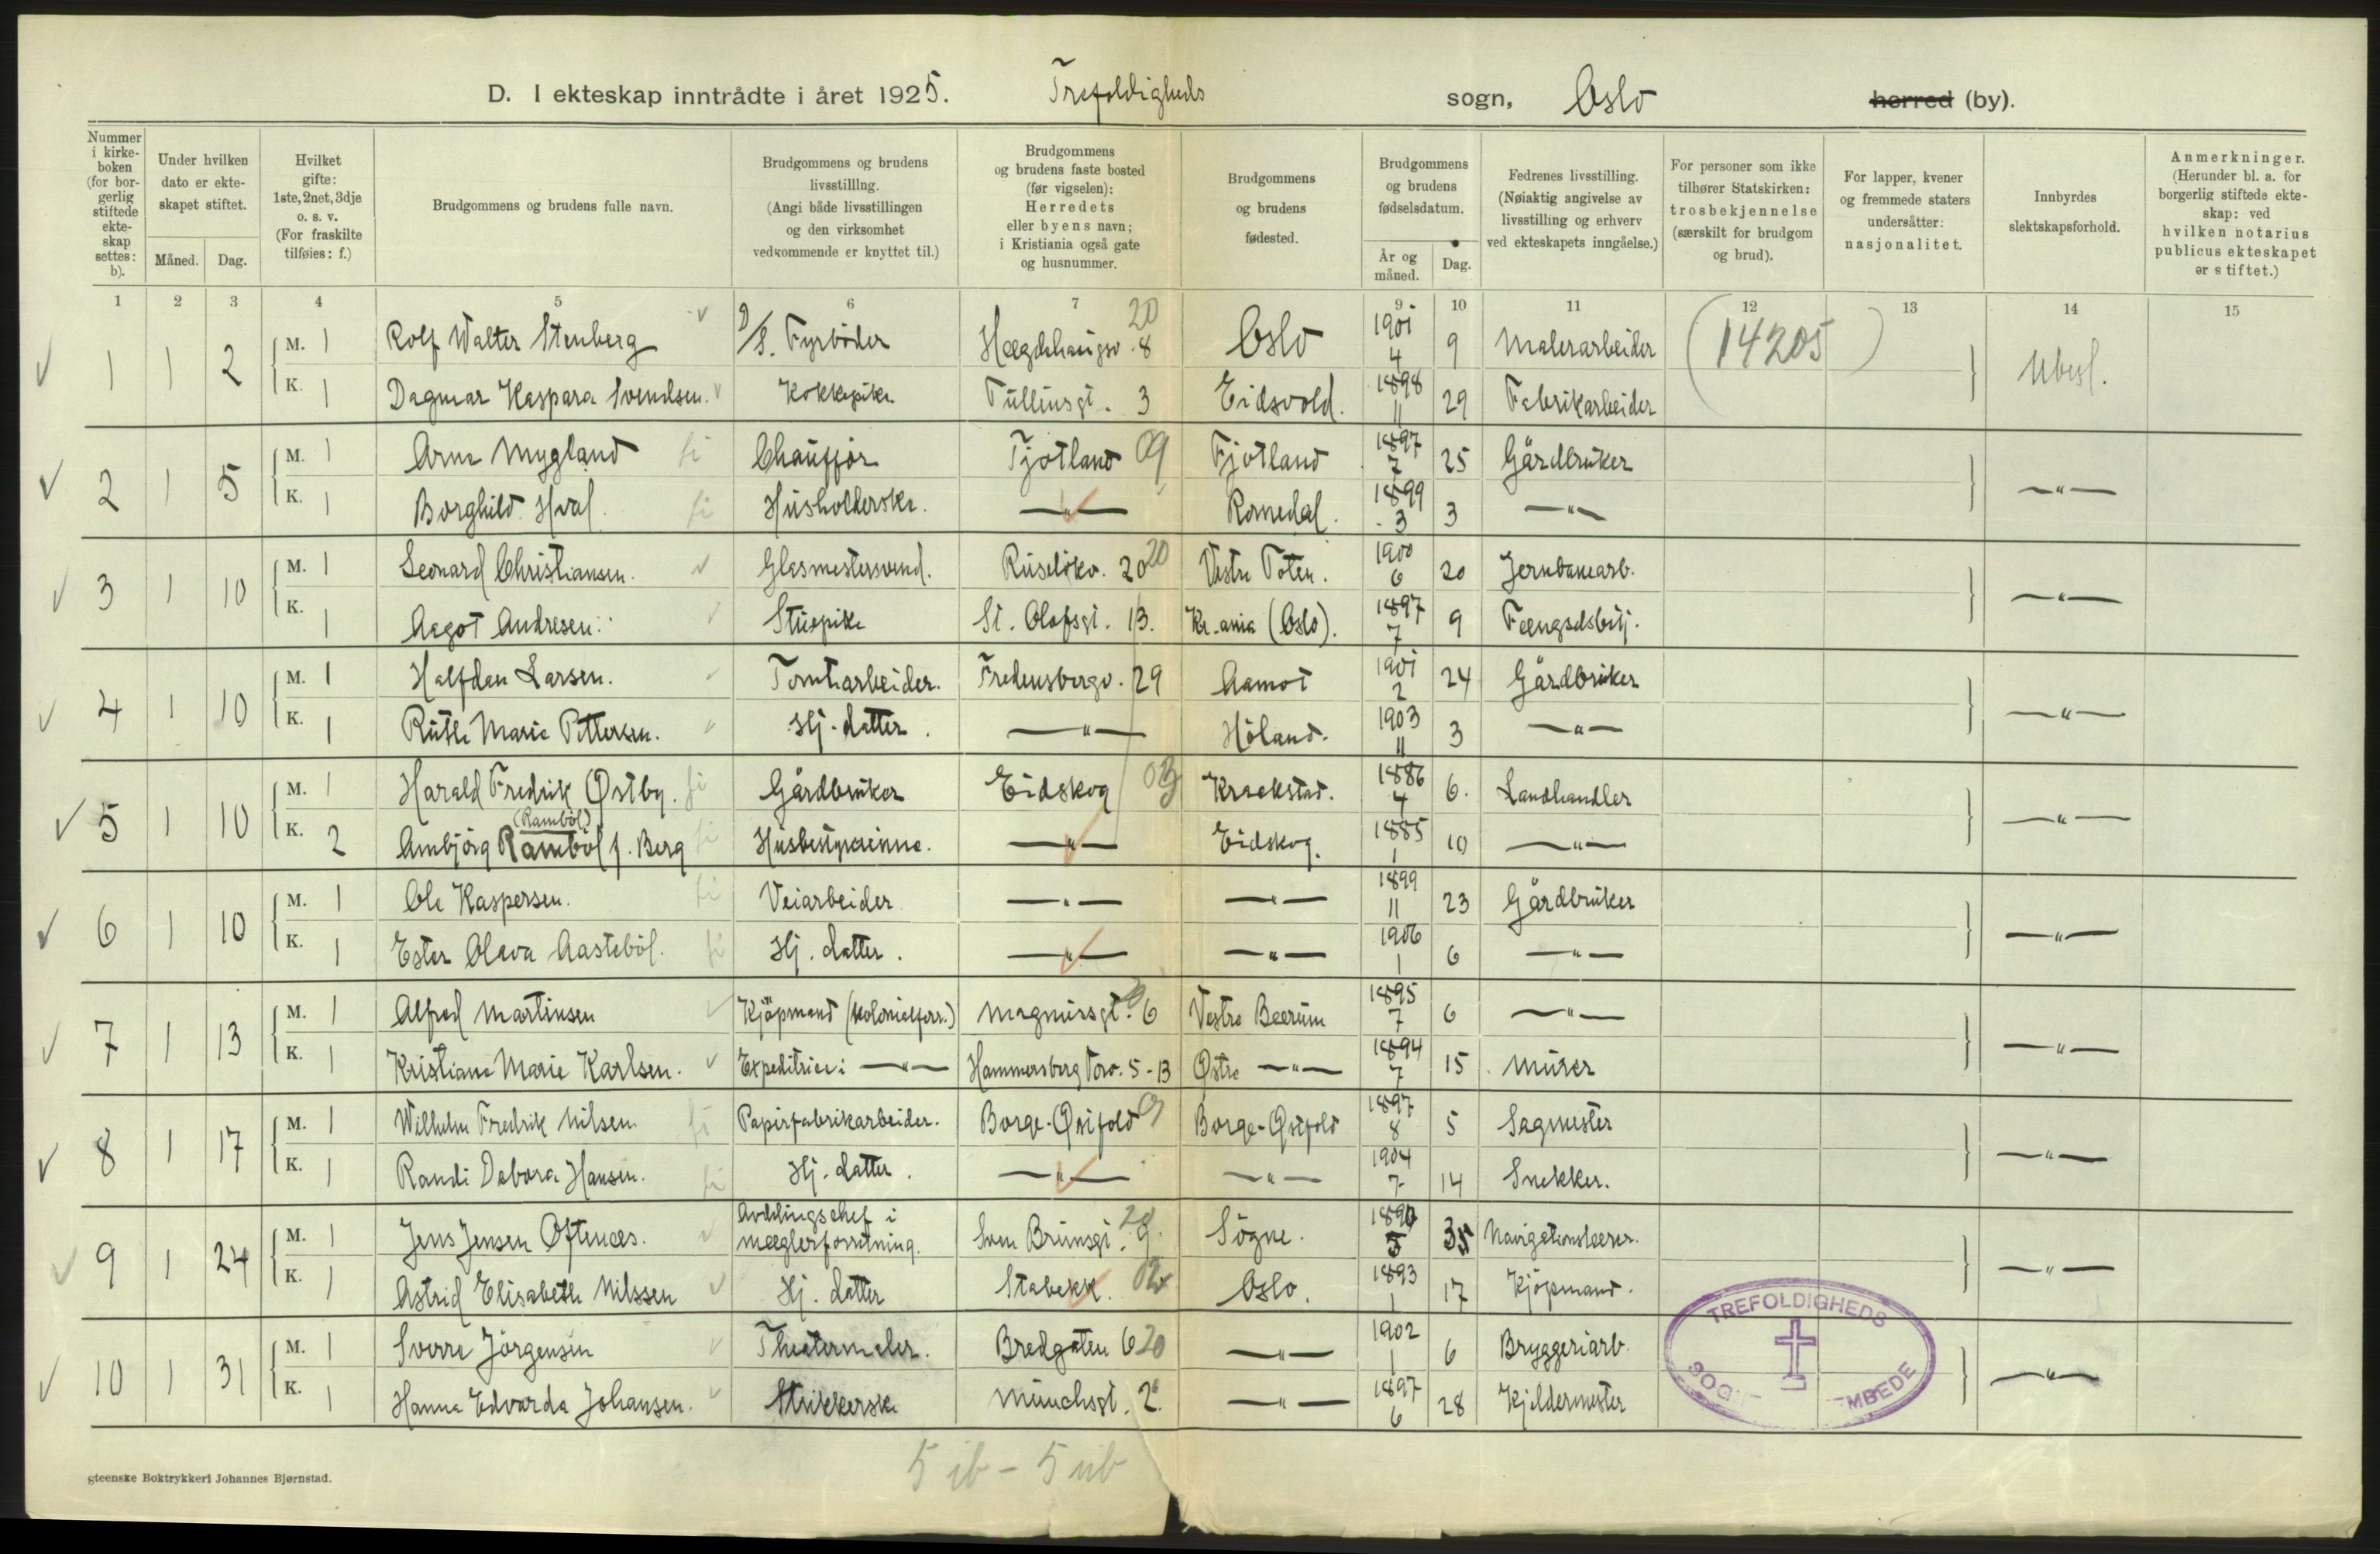 D. I ekteskap inntrådte i året 1925. Trefoldigheds sogn, Oslo herred (by).
Nummer i kirkeboken (for borgerlig stiftede ekteskap settes: b).
Under hvilken dato er ekteskapet stiftet. Måned. Dag.
Hvilket gifte: 1ste, 2net, 3dje o. s. v. (For fraskilte tilføies: f.)
Brudgommens og brudens fulle navn.
Brudgommens og brudens livsstilling. (Angi både livsstillingen og den virksomhet vedkommende er knyttet til.)
Brudgommens og brudens faste bosted (før vigselen): Herredets eller byens navn; i Kristiania også gate og husnummer.
Brudgommens og brudens fødested.
Brudgommens og brudens fødselsdatum. År og måned. Dag.
Fedrenes livsstilling. (Nøiaktig angivelse av livsstilling og erhverv ved ekteskapets inngåelse.)
For personer som ikke tilhører Statskirken: trosbekjennelse (særskilt for brudgom og brud).
For lapper, kvener og fremmede staters undersåtter: nasjonalitet.
Innbyrdes slektskapsforhold.
Anmerkninger. (Herunder bl. a. for borgerlig stiftede ekteskap: ved hvilken notarius publicus ekteskapet er stiftet.)
1 2 3 4 5 6 7 8 9 10 11 12 13 14 15
1 1 2 M. 1 Rolf Walter Stenberg D/S. Fyrbøder Hægdehaugsv. 8 20 Oslo 1901 4 9 Malerarbeider (14205) Ubesl.
K. 1 Dagmar Kaspara Svendsen. Kokkepike Tullinsgt. 3 Eidsvold. 1898 11 29 Fabrikarbeider
2 1 5 M. 1 Arne Mygland fi Chauffør Fjotland 09 Fjotland 1897 7 25 Gårdbruker —"—
K. 1 Borghild Hval. fi Husholderske. —"— Romedal. 1899 3 3 —"—
3 1 10 M. 1 Leonard Christiansen. Glasmestersvend. Ruseløkv. 20 20 Vestre Toten. 1900 6 20 Jernbanearb. —"—
K. 1 Aagot Andresen. Stuepike St. Olafsgt. 13. Kr.ania (Oslo). 1897 7 9 Fængselsbetj.
4 1 10 M. 1 Halfdan Larsen. Tomtearbeider. Fredensborgv. 29 Aamot 1901 2 24 Gårdbruker —"—
K. 1 Ruth Marie Pettersen. Hj. datter. —"— Höland. 1903 11 3 —"—
5 1 10 M. 1 Harald Fredrik Østby. fi Gårdbruker Eidskog 03 Kraakstad. 1886 4 6. Landhandler —"—
K. 2 Ambjörg Ramböl (Ramböl) f. Berg fi Husbestyrerinne. —"— Eidskog. 1885 1 10 —"—
6 1 10 M. 1 Ole Kaspersen. fi Veiarbeider —"— —"— 1899 11 23 Gårdbruker —"—
K. 1 Ester Olava Aasteböl. fi Hj. datter. —"— —"— 1906 1 6 —"—
7 1 13 M. 1 Alfred Martinsen Kjøpmand (kolonialforr.) Magnusgt. 6 Vestre Bærum 1895 7 6 —"— —"—
K. 1 Kristiane Marie Karlsen. Expeditrice i —"— Hammersborg Torv. 5-13 Østre —"— 1894 7 15 Murer
8 1 17 M. 1 Wilhelm Fredrik Nilsen. fi Papirfabrikarbeider. Borge-Østfold Borge-Østfold 1897 8 5 Sagmester —"—
K. 1 Randi Debora Hansen. fi Hj. datter. —"— —"— 1904 7 14 Snekker.
9 1 24 M. 1 Jens Jensen Oftenæs. Avdelingschef i mæglerforretning. Sven Brunsgt. 9. 20 Søgne. 1890 5 Navigationslærer. —"—
K. 1 Astrid Elisabeth Nilssen Hj. datter Stabekk. 02 Oslo. 1893 1 17 Kjøpmand.
10 1 31 M. 1 Sverre Jörgensen Theatermaler. Bredgaten 6 20 —"— 1902 1 6 Bryggeriarb. —"—
K. 1 Hanna Edvarda Johansen. Strikkerske Munchsgt. 2. —"— 1897 6 28 Kjeldermester
TREFOLDIGHEDS SOG MBEDE
5 ib - 5 ub
gteenske Boktrykkeri Johannes Bjørnstad.